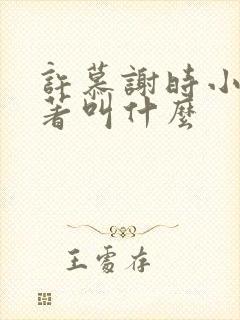 許慕謝時小
著叫什麼
王雪存